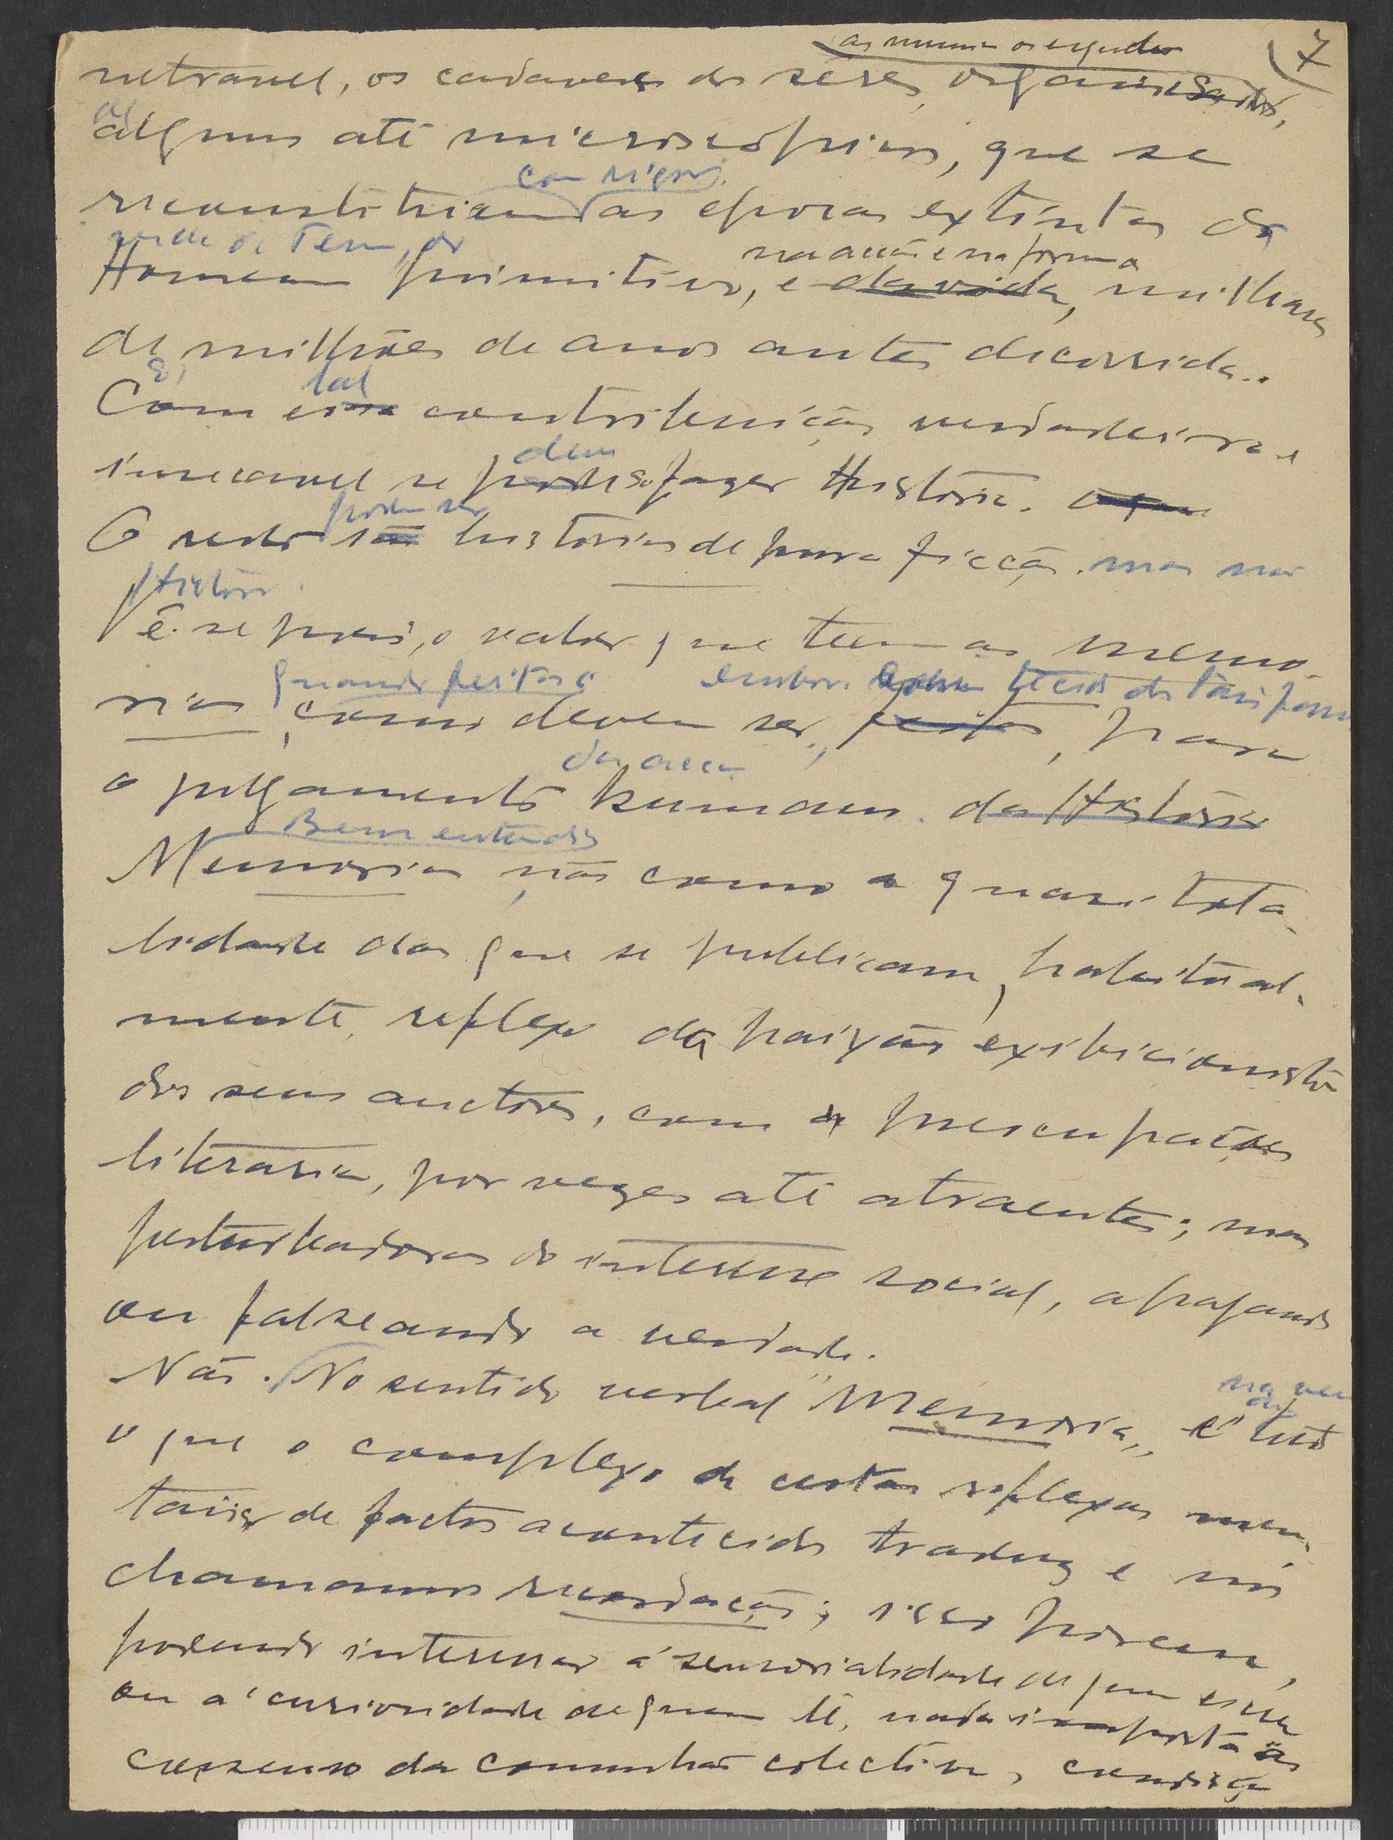 7
netravel, os cadaveres dos seres
alguns até microscopicos, que se
com rigor
reconstituiam as epocas extintas da
na acção e na forma
Homem primitivo, e da vida, milhares
de milhões de anos antes decorridos.
tal
Com essa contribuição verdadeira e
dem
se pode fazer História.
podem ser
O resto são historias de pura ficção. mas não
História.
E' se pois, o valor que teem as memo-
quando feitas embora tecido de
rias, como devem ser, feitas, para
o julgamento humano. da História
Bem entendido
Memorias não como a quasi tota-
lidade das que se publicam, habitual-
mente, reflexo da paixão exibicionista
dos seus auctores, com a preocupação
literaria, por vezes até atraentes; mas
perturbadoras do interesse social, apagando
ou falseando a verdade.
Não. No sentido verbal "Memoria" é tudo
o que o complexo de certas reflexas men-
tais de factos acontecidos traduz e nós
chamamos recordação; isso porem,
podendo interessar á sensorialidade de quem
ou a curiosidade de quem lê, nada importa
da comunhão colectiva,